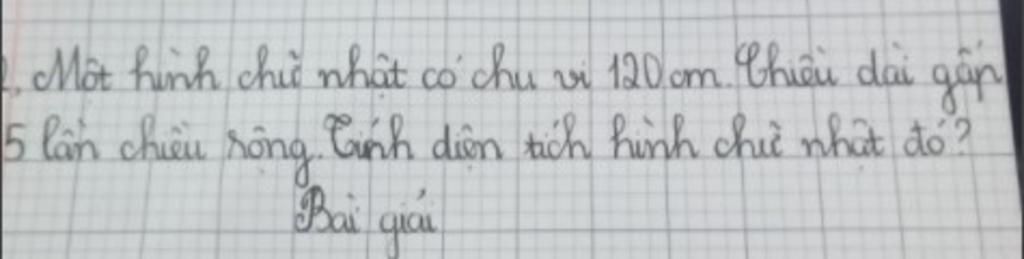 2. Một hình chữ nhật có chu vi 120cm. Chiều dài gấp
5 lần chiều rộng. Tính diện tích hình chữ nhật đó?
Bài giải